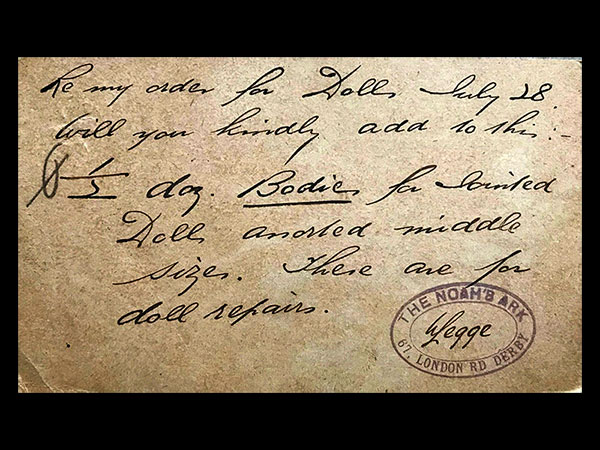 Re my order for Dolls July 28
Will you kindly add to this :-
1/2 doz. Bodies for Jointed
Dolls assorted middle
sizes. These are for
doll repairs.
THE NOAH'S ARK
Legge
67, LONDON RD DERBY